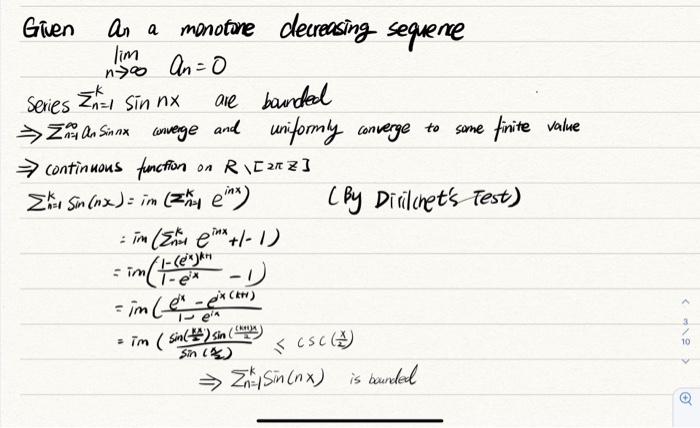 Given an a monotone decreasing sequence
lim n→∞ an = 0
Series Σ^k_{n=1} sin nx are bounded
⇒ Σ^∞_{n=1} an sin nx converge and uniformly converge to some finite value
⇒ continuous function on R \ [2π Z]
Σ^k_{n=1} sin(nx) = im (Σ^k_{n=1} e^{inx}) (By Dirilchet's Test)
= im (Σ^k_{n=1} e^{inx} +1 - 1)
= im (\frac{1-(e^{ix})^{k+1}}{1-e^{ix}} - 1)
= im (\frac{e^{ix} - e^{ix(k+1)}}{1-e^{ix}})
= im (\frac{sin(\frac{kx}{2}) sin(\frac{(k+1)x}{2})}{sin(\frac{x}{2})}) ≤ csc(\frac{x}{2})
⇒ Σ^k_{n=1} sin(nx) is bounded
3
/
10